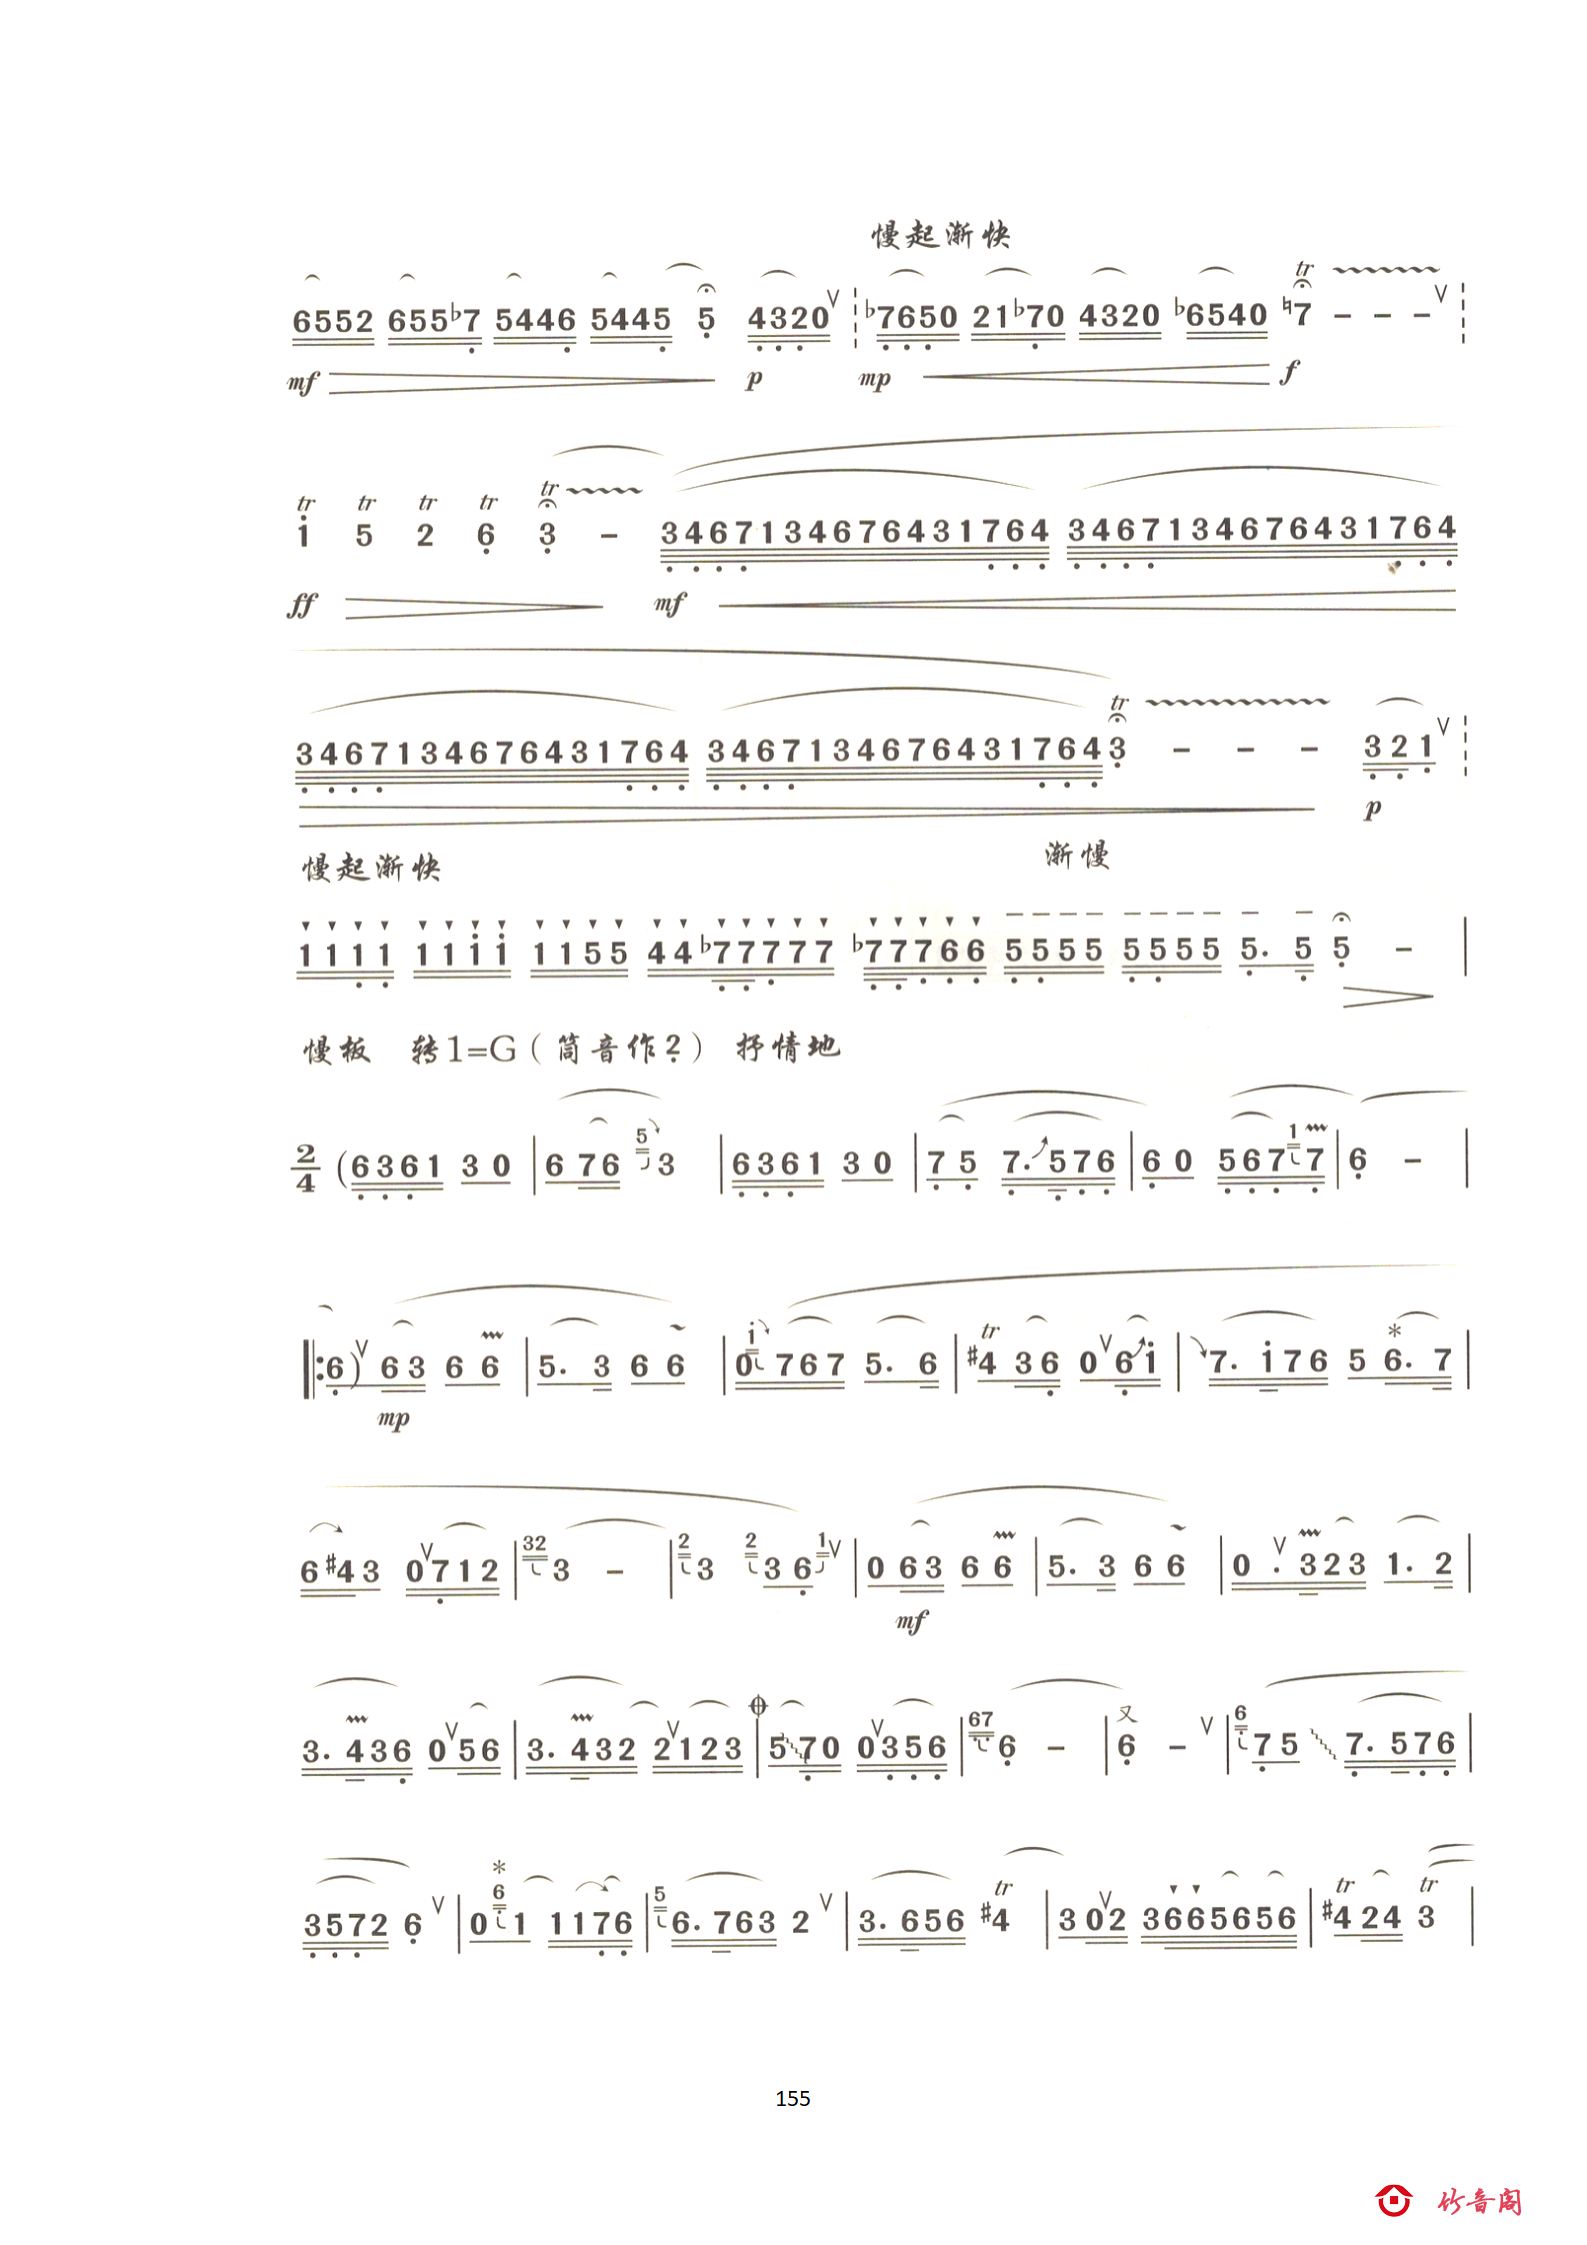 慢起渐快
6552 655♭7 5446 5445 5 4320 ♭7650 21♭70 4320 ♭6540 ♮7 - - -
mf p mp f
tr tr tr tr tr
1 5 2 6 3 - 3467134676431764 3467134676431764
ff mf
tr
3467134676431764 3467134676431764 3 - - - 321
p
慢起渐快 渐慢
1111 1111 1155 44♭77777 ♭77766 5555 5555 5. 5 5 -
慢板 转1=G（筒音作2） 抒情地
2/4 (6361 30 | 676 5 3 | 6361 30 | 75 7.576 | 60 567 1 7 | 6 - |
6) 63 66 | 5. 3 66 | 0 i 767 5. 6 | tr ♯4 36 0 6i | 7. i76 5 6. 7 |
mp
6♯43 0712 | 32 3 - | 2 3 2 36 1 | 063 66 | 5. 366 | 0 . 323 1. 2 |
mf
3. 436 056 | 3. 432 2123 | 570 0356 | 67 6 - | 又 6 - | 6 75 7. 576 |
3572 6 | 0 6 1 1176 | 5 6. 763 2 | 3. 656 tr ♯4 | 302 3665656 | tr ♯4 24 tr 3 |
155
竹音阁